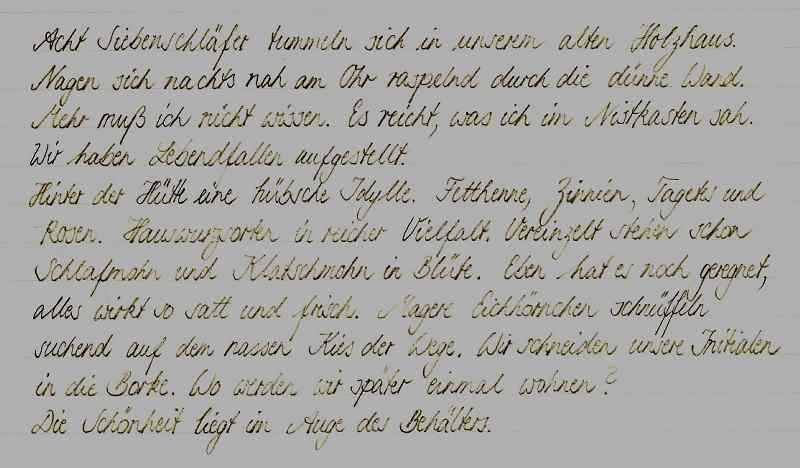 Acht Siebenschläfer tummeln sich in unserem alten Holzhaus.
Nagen sich nachts nah am Ohr raspelnd durch die dünne Wand.
Mehr muß ich nicht wissen. Es reicht, was ich im Nistkasten sah.
Wir haben Lebendfallen aufgestellt.
Hinter der Hütte eine hübsche Idylle. Fetthenne, Zinnien, Tagetes und
Rosen. Hauswurzsorten in reicher Vielfalt. Vereinzelt stehen schon
Schlafmohn und Klatschmohn in Blüte. Eben hat es noch geregnet,
alles wirkt so satt und frisch. Magere Eichhörnchen schnüffeln
suchend auf dem nassen Kies der Wege. Wir schneiden unsere Initialen
in die Borke. Wo werden wir später einmal wohnen?
Die Schönheit liegt im Auge des Behälters.